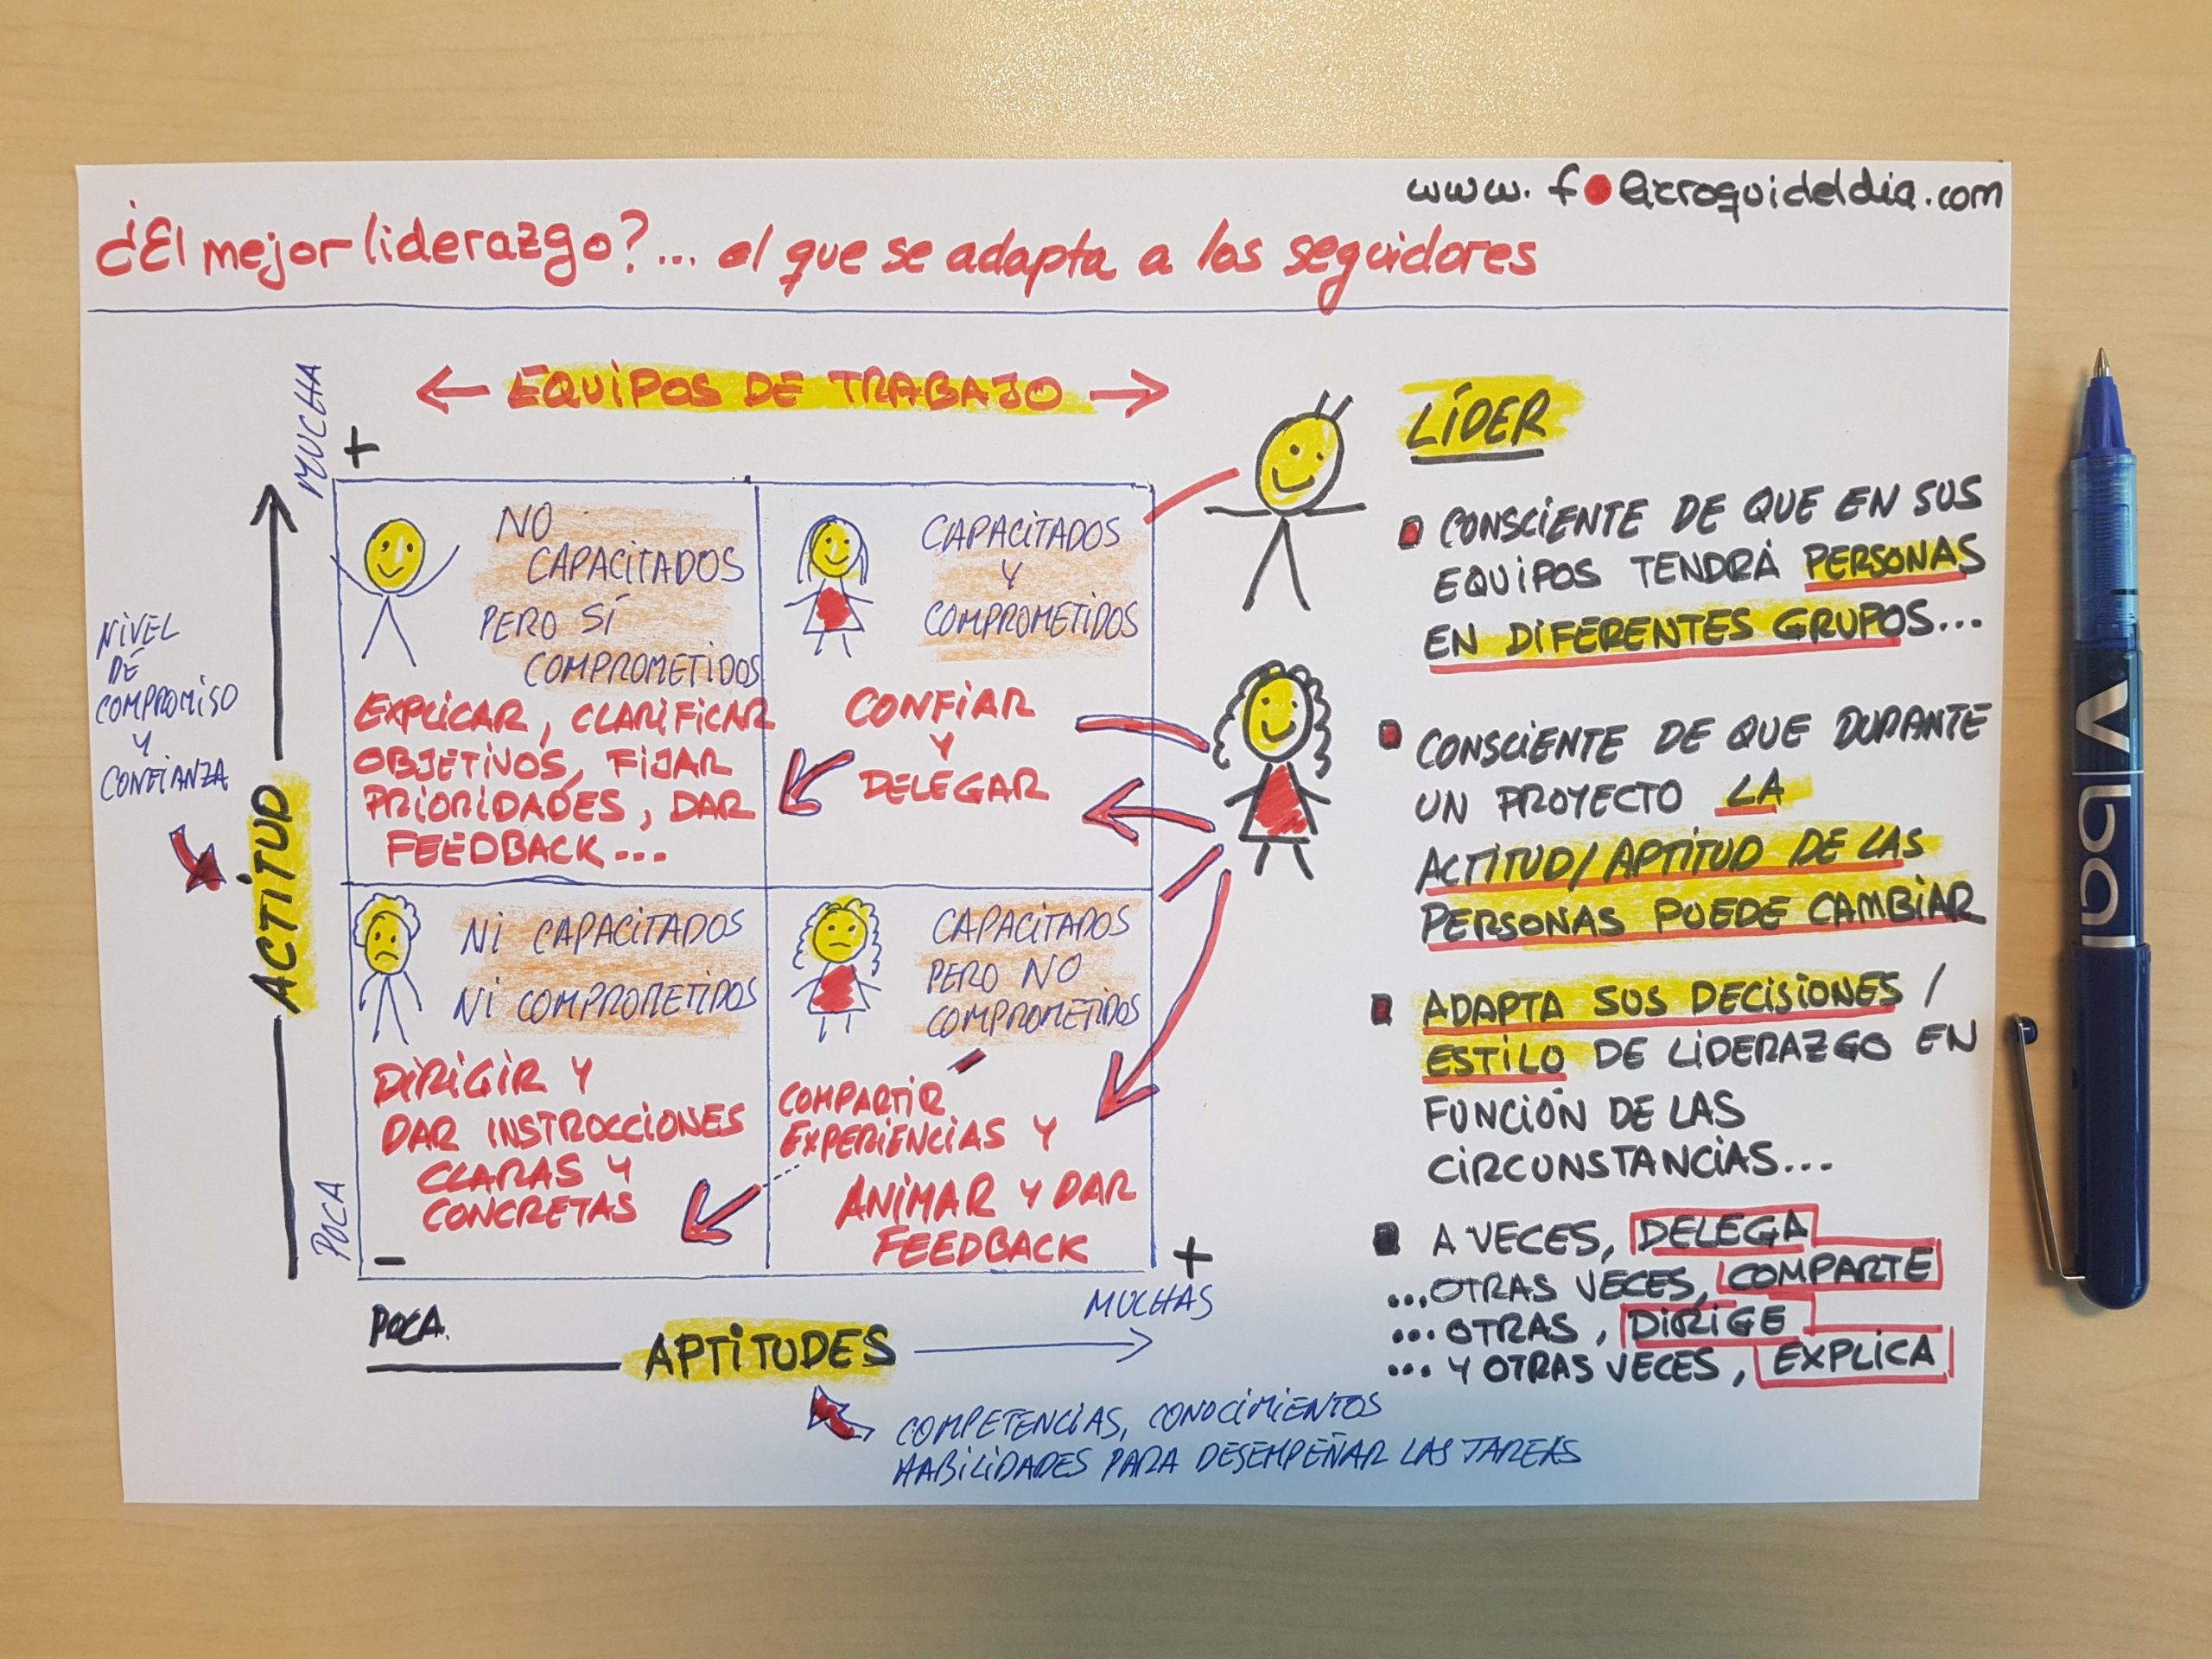 www.f●lixcroquideldia.com
¿El mejor liderazgo?... el que se adapta a los seguidores
← EQUIPOS DE TRABAJO →
MUCHA
+
NIVEL
DE
COMPROMISO
Y
CONFIANZA
ACTITUD
POCA
NO
CAPACITADOS
PERO SÍ
COMPROMETIDOS
EXPLICAR, CLARIFICAR
OBJETIVOS, FIJAR
PRIORIDADES, DAR
FEEDBACK...
CAPACITADOS
Y
COMPROMETIDOS
CONFIAR
Y
DELEGAR
NI CAPACITADOS
NI COMPROMETIDOS
DIRIGIR Y
DAR INSTROCCIONES
CLARAS Y
CONCRETAS
CAPACITADOS
PERO NO
COMPROMETIDOS
COMPARTIR
EXPERIENCIAS Y
ANIMAR Y DAR
FEEDBACK
−
+
POCA
MUCHAS
APTITUDES
COMPETENCIAS, CONOCIMIENTOS
HABILIDADES PARA DESEMPEÑAR LAS TAREAS
LÍDER
CONSCIENTE DE QUE EN SUS
EQUIPOS TENDRÁ PERSONAS
EN DIFERENTES GRUPOS...
CONSCIENTE DE QUE DURANTE
UN PROYECTO LA
ACTITUD/APTITUD DE LAS
PERSONAS PUEDE CAMBIAR
ADAPTA SUS DECISIONES /
ESTILO DE LIDERAZGO EN
FUNCIÓN DE LAS
CIRCUNSTANCIAS...
A VECES, DELEGA
...OTRAS VECES, COMPARTE
...OTRAS, DIRIGE
... Y OTRAS VECES, EXPLICA
V ball